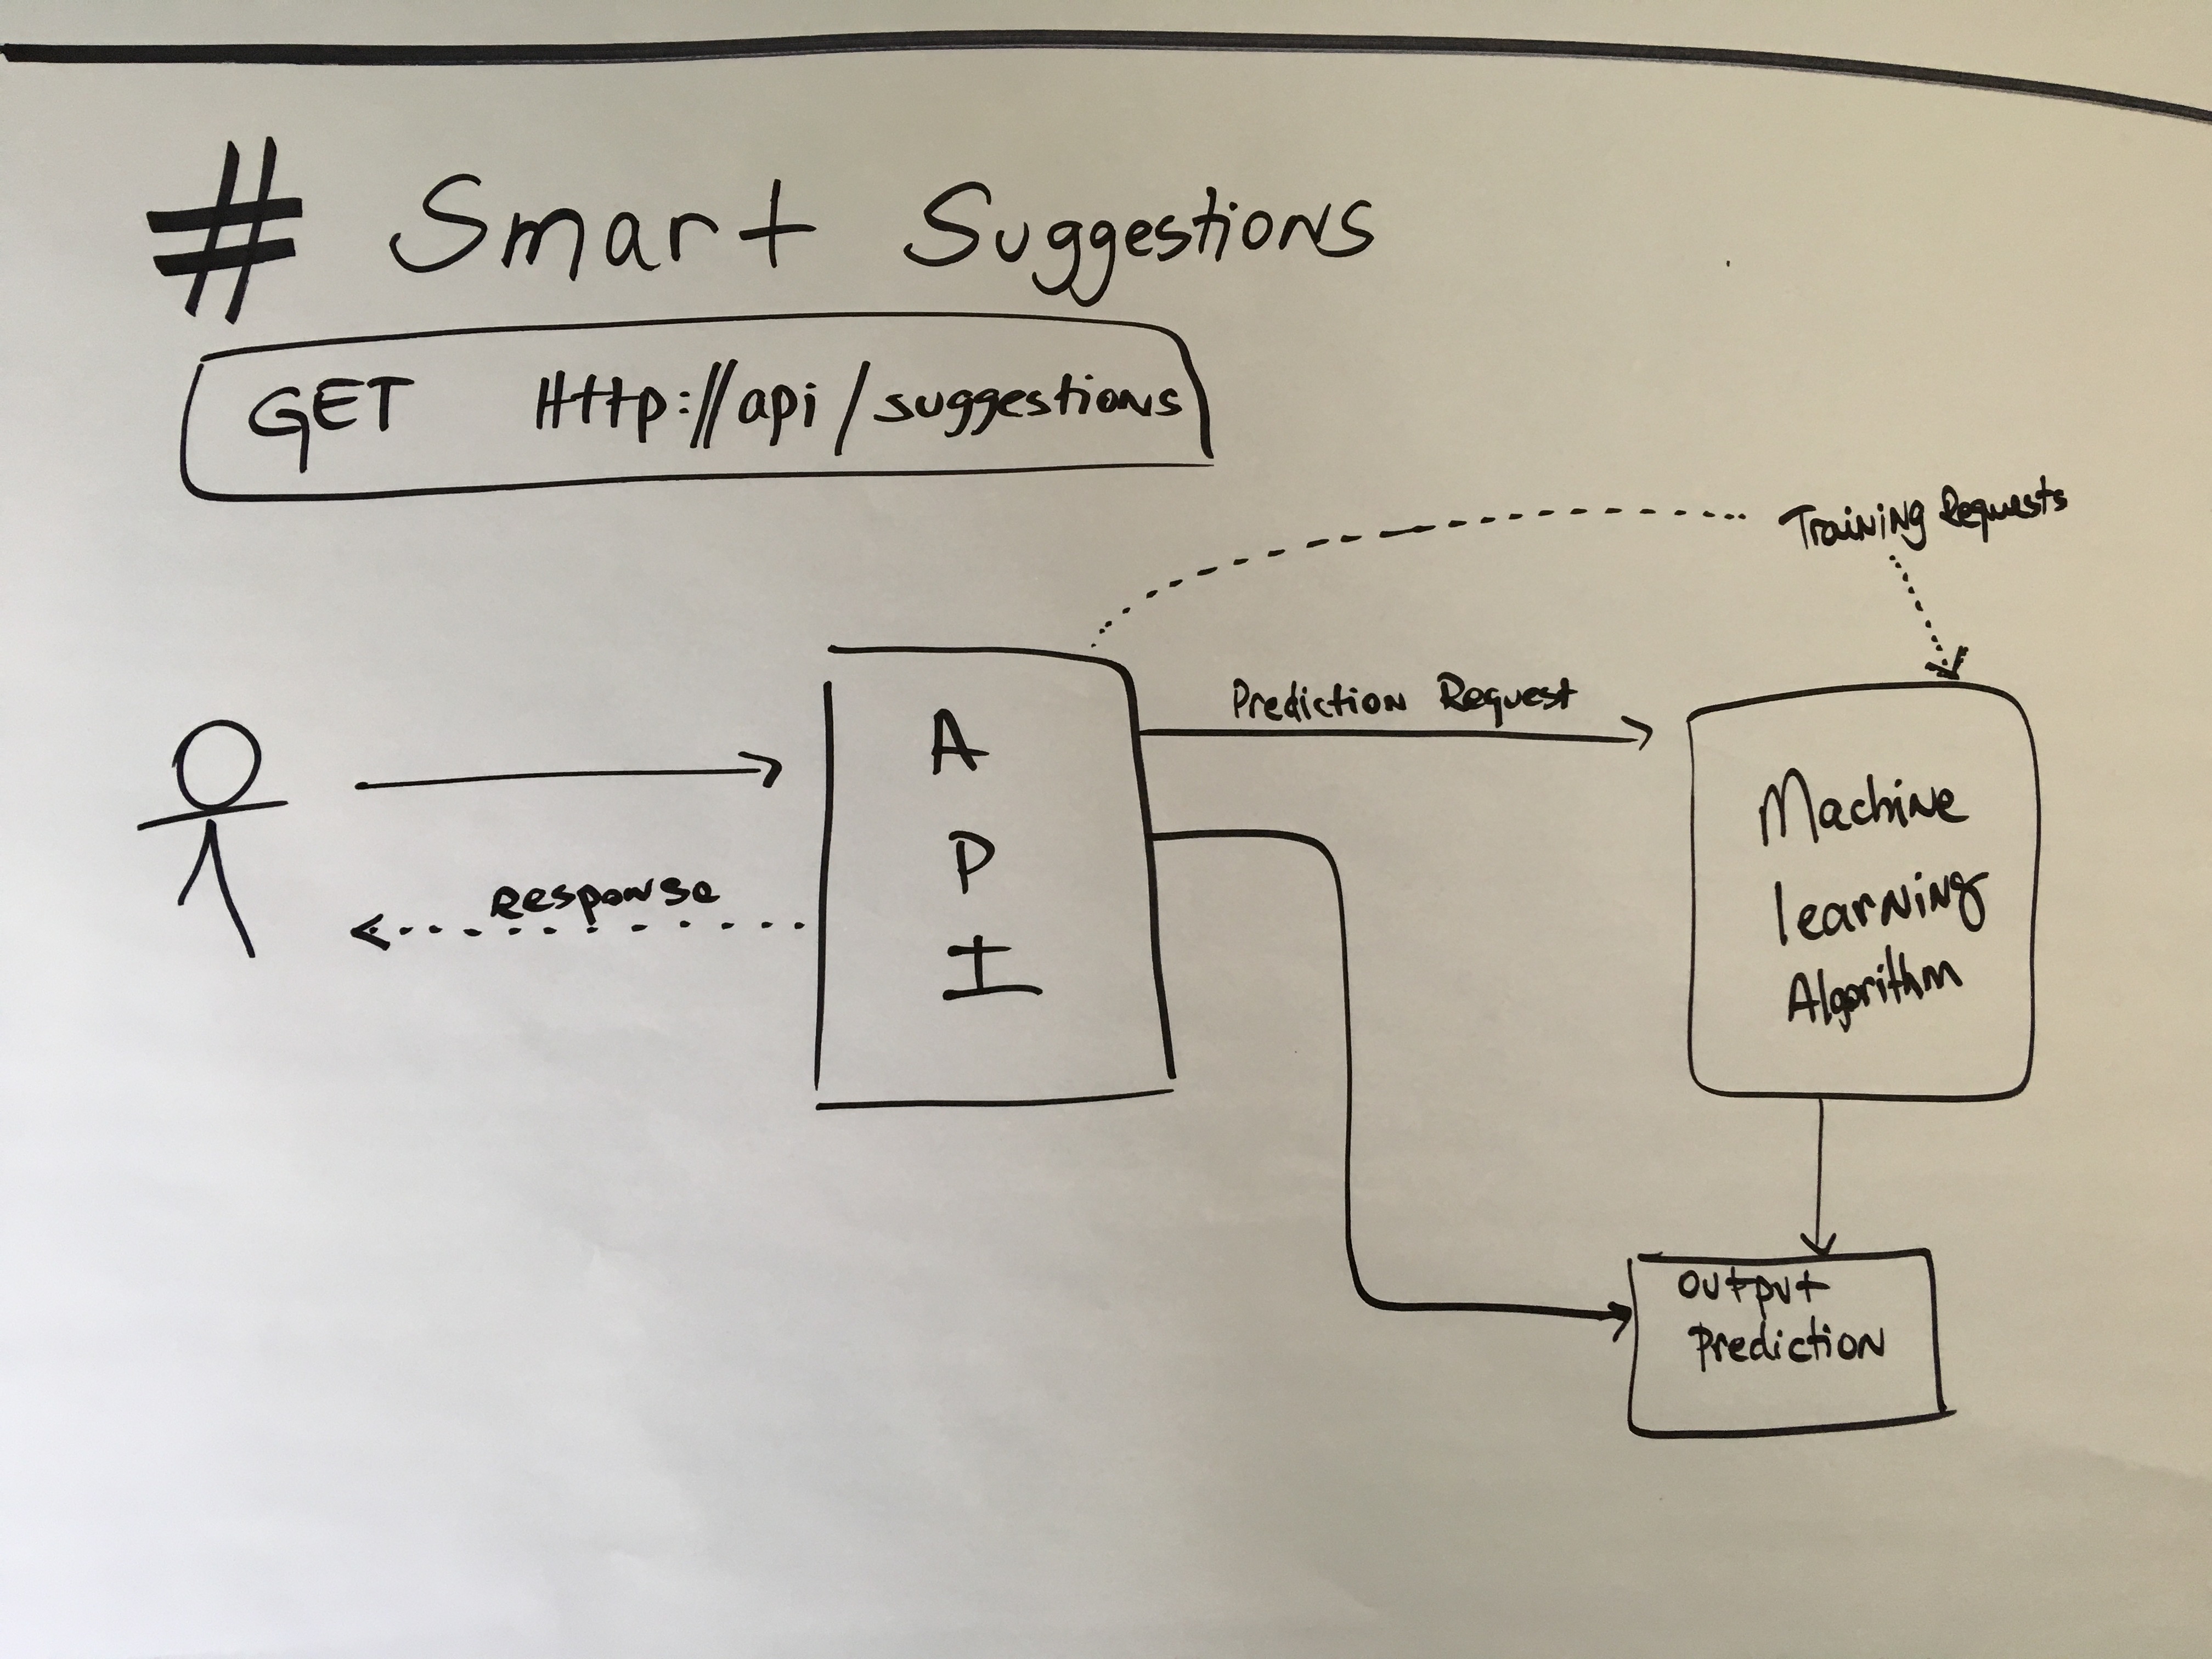 # Smart Suggestions
GET Http://api/suggestions
Training Requests
Prediction Request
A
P
I
Response
Machine
learning
Algorithm
Output
Prediction